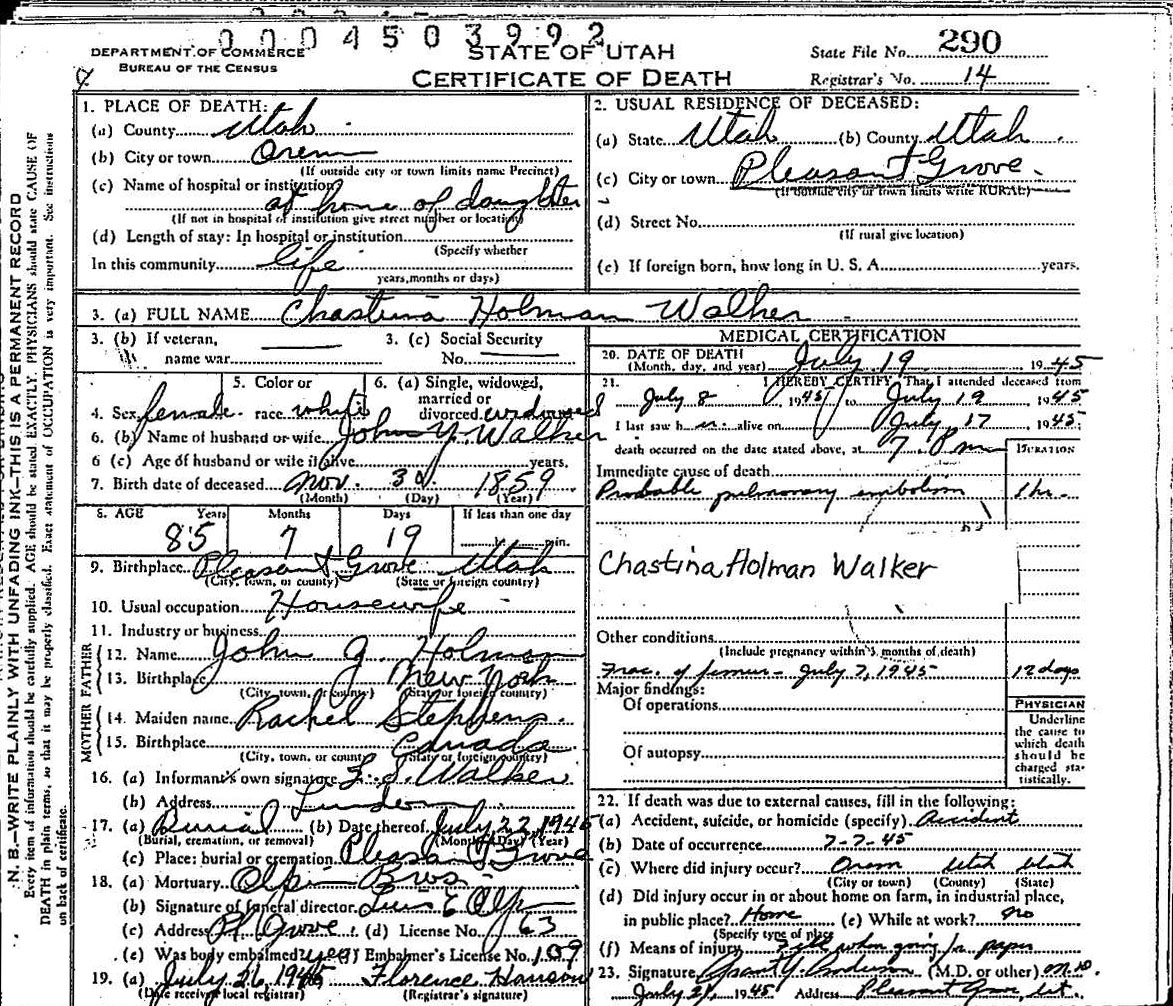 0004503992
DEPARTMENT OF COMMERCE
BUREAU OF THE CENSUS
STATE OF UTAH
CERTIFICATE OF DEATH
State File No. 290
Registrar's No. 14
N. B.—WRITE PLAINLY WITH UNFADING INK—THIS IS A PERMANENT RECORD
Every item of information should be carefully supplied. AGE should be stated EXACTLY. PHYSICIANS should state CAUSE OF
DEATH in plain terms, so that it may be properly classified. Exact statement of OCCUPATION is very important. See instructions
on back of certificate.
1. PLACE OF DEATH:
(a) County Utah
(b) City or town Orem
(If outside city or town limits name Precinct)
(c) Name of hospital or institution
at home of daughter
(If not in hospital or institution give street number or location)
(d) Length of stay: In hospital or institution
(Specify whether
In this community life
years, months or days)
2. USUAL RESIDENCE OF DECEASED:
(a) State Utah (b) County Utah
(c) City or town Pleasant Grove
(If outside city or town limits write RURAL)
(d) Street No.
(If rural give location)
(e) If foreign born, how long in U. S. A. years.
3. (a) FULL NAME Chastina Holman Walker
3. (b) If veteran,
name war
3. (c) Social Security
No.
4. Sex female
5. Color or
race white
6. (a) Single, widowed,
married or
divorced widowed
6. (b) Name of husband or wife John Y. Walker
6 (c) Age of husband or wife if alive years.
7. Birth date of deceased Nov. 30 1859
(Month) (Day) (Year)
8. AGE Years Months Days If less than one day
85 7 19 min.
9. Birthplace Pleasant Grove Utah
(City, town, or county) (State or foreign country)
10. Usual occupation Housewife
11. Industry or business
FATHER
12. Name John G. Holman
13. Birthplace New York
(City, town, or county) (State or foreign country)
MOTHER
14. Maiden name Rachel Stephens
15. Birthplace Canada
(City, town, or county) (State or foreign country)
16. (a) Informant's own signature L. S. Walker
(b) Address Lindon
17. (a) Burial (b) Date thereof July 22, 1945
(Burial, cremation, or removal) (Month) (Day) (Year)
(c) Place: burial or cremation Pleasant Grove
18. (a) Mortuary Olpin Bros.
(b) Signature of funeral director E Olpin
(c) Address Pl Grove (d) License No. 63
(e) Was body embalmed? yes (f) Embalmer's License No. 109
19. (a) July 26, 1945 Florence Hanson
(Date received local registrar) (Registrar's signature)
MEDICAL CERTIFICATION
20. DATE OF DEATH
(Month, day, and year) July 19 1945
21. I HEREBY CERTIFY, That I attended deceased from
July 8 1945 to July 19 1945
I last saw her alive on July 17 1945;
death occurred on the date stated above, at 7 P m
DURATION
Immediate cause of death
Probable pulmonary embolism 1 hr.
Chastina Holman Walker
Other conditions
(Include pregnancy within 3 months of death)
Frac. of femur - July 7, 1945 12 days
Major findings:
Of operations
Of autopsy
PHYSICIAN
Underline
the cause to
which death
should be
charged sta-
tistically.
22. If death was due to external causes, fill in the following:
(a) Accident, suicide, or homicide (specify) Accident
(b) Date of occurrence 7-7-45
(c) Where did injury occur? Orem Utah Utah
(City or town) (County) (State)
(d) Did injury occur in or about home on farm, in industrial place,
in public place? Home (e) While at work? no
(Specify type of place)
(f) Means of injury Fell when going for paper
23. Signature Grant Y. Anderson (M.D. or other) M.D.
July 21, 1945 Address Pleasant Grove Ut.